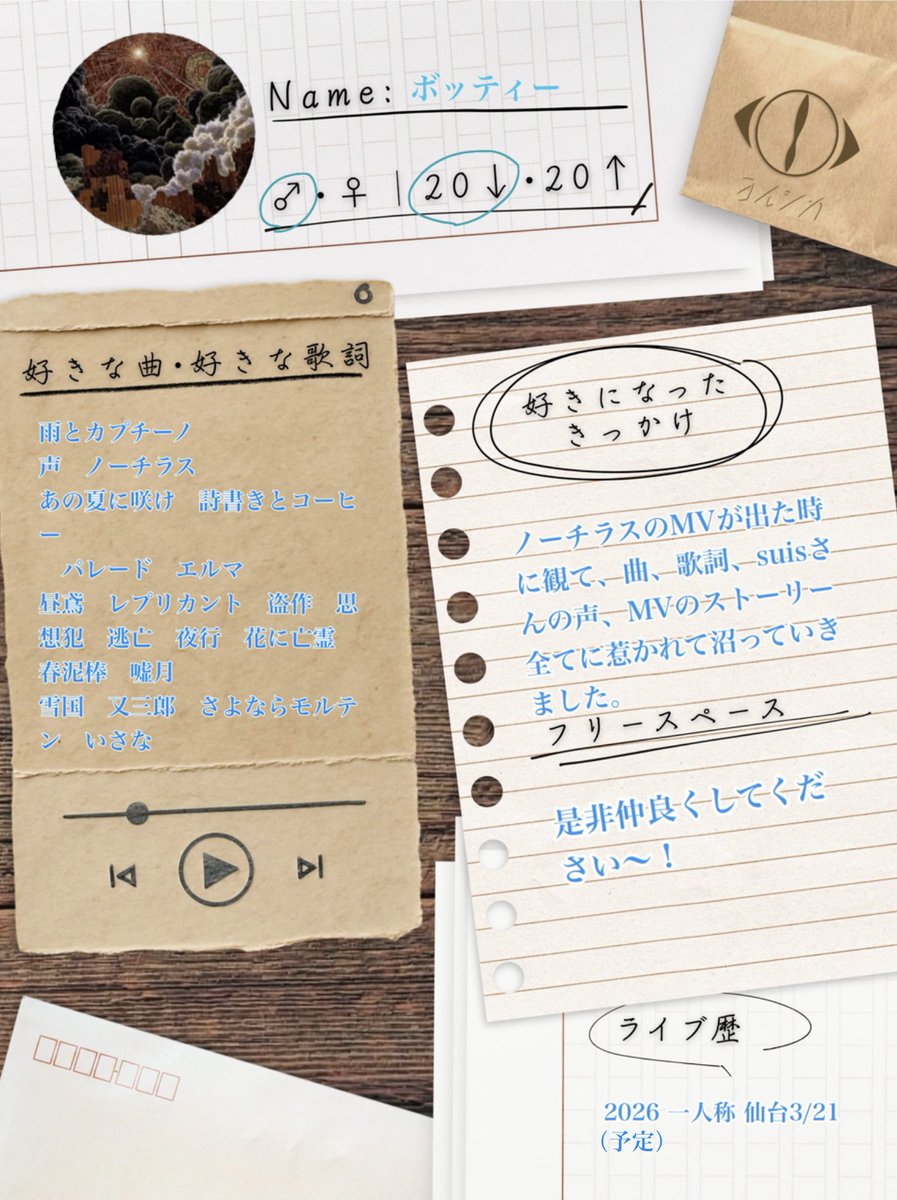 Name: ボッティー
♂・♀ | 20↓・20↑
ヨルシカ
好きな曲・好きな歌詞
雨とカプチーノ
声　ノーチラス
あの夏に咲け　詩書きとコーヒ
ー
　パレード　エルマ
昼鳶　レプリカント　盗作　思
想犯　逃亡　夜行　花に亡霊
春泥棒　嘘月
雪国　又三郎　さよならモルテ
ン　いさな
好きになった
きっかけ
ノーチラスのMVが出た時
に観て、曲、歌詞、suisさ
んの声、MVのストーリー
全てに惹かれて沼っていき
ました。
フリースペース
是非仲良くしてくだ
さい〜！
ライブ歴
2026 一人称 仙台3/21
(予定)